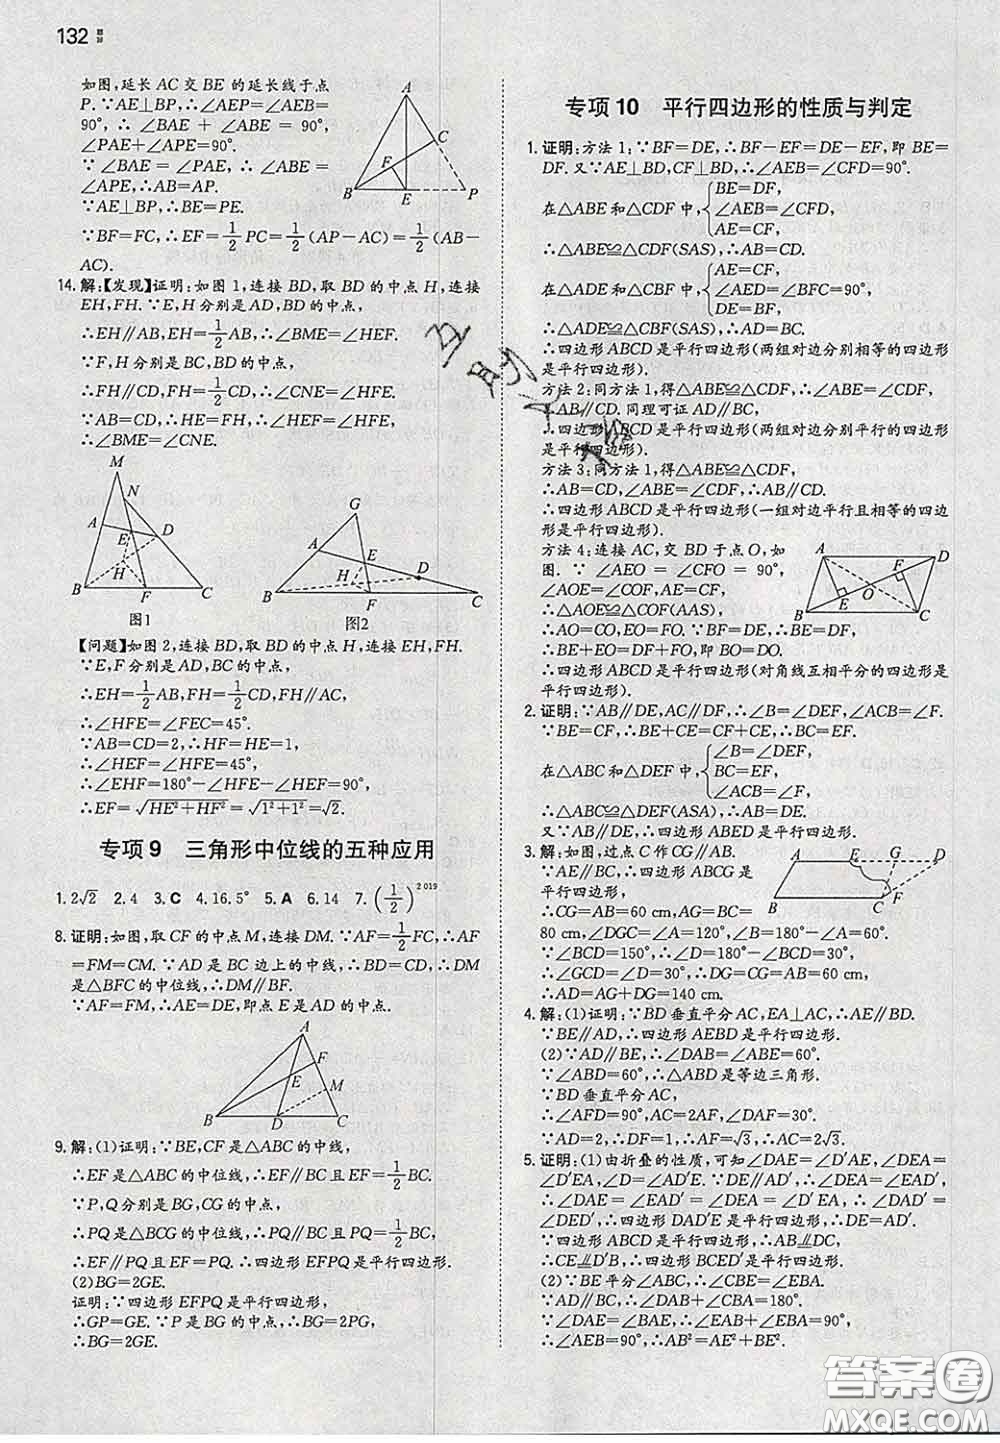 132
如图,延长 AC 交 BE 的延长线于点
P. ∵AE⊥BP,∴∠AEP=∠AEB=
90°,∴∠BAE + ∠ABE = 90°,
∠PAE+∠APE=90°.
∵∠BAE = ∠PAE,∴∠ABE =
∠APE,∴AB=AP.
∵AE⊥BP,∴BE=PE.
∵BF=FC,∴EF=1/2 PC=1/2(AP-AC)=1/2(AB-
AC).
A
C
F
B
E
P
14. 解:【发现】证明:如图 1,连接 BD,取 BD 的中点 H,连接
EH,FH. ∵E,H 分别是 AD,BD 的中点,
∴EH∥AB,EH=1/2AB,∴∠BME=∠HEF.
∵F,H 分别是 BC,BD 的中点,
∴FH∥CD,FH=1/2CD,∴∠CNE=∠HFE.
∵AB=CD,∴HE=FH,∴∠HEF=∠HFE,
∴∠BME=∠CNE.
M
N
A
E
D
H
B
F
C
图1
G
A
E
H
D
B
F
C
图2
【问题】如图 2,连接 BD,取 BD 的中点 H,连接 EH,FH.
∵E,F 分别是 AD,BC 的中点,
∴EH=1/2AB,FH=1/2CD,FH∥CD,
∴∠HFE=∠FEC=45°.
∵AB=CD=2,∴HF=HE=1,
∴∠HEF=∠HFE=45°,
∴∠EHF=180°-∠HFE-∠HEF=90°,
∴EF=√(HE²+HF²)=√(1²+1²)=√2.
专项 9 三角形中位线的五种应用
1. 2√2 2. 4 3. C 4. 16.5° 5. A 6. 14 7. (1/2)^2019
8. 证明:如图,取 CF 的中点 M,连接 DM. ∵AF=1/2FC,∴AF
=FM=CM. ∵AD 是 BC 边上的中线,∴BD=CD,∴DM
是△BFC 的中位线,∴DM∥BF.
∵AF=FM,∴AE=DE,即点 E 是 AD 的中点.
A
F
E
M
B
D
C
9. 解:(1)证明:∵BE,CF 是△ABC 的中线,
∴EF 是△ABC 的中位线,∴EF∥BC 且 EF=1/2BC.
∵P,Q 分别是 BG,CG 的中点,
∴PQ 是△BCG 的中位线,∴PQ∥BC 且 PQ=1/2BC,
∴EF∥PQ 且 EF=PQ. ∴四边形 EFPQ 是平行四边形.
(2)BG=2GE.
证明:∵四边形 EFPQ 是平行四边形,
∴GP=GE. ∵P 是 BG 的中点,∴BG=2PG,
∴BG=2GE.
专项 10 平行四边形的性质与判定
1. 证明:方法 1:∵BF=DE,∴BF-EF=DE-EF,即 BE=
DF. 又∵AE⊥BD,CF⊥BD,∴∠AEB=∠CFD=90°.
在△ABE 和△CDF 中,{BE=DF,
∠AEB=∠CFD,
AE=CF,
∴△ABE≌△CDF(SAS),∴AB=CD.
在△ADE 和△CBF 中,{AE=CF,
∠AED=∠BFC=90°,
DE=BF,
∴△ADE≌△CBF(SAS),∴AD=BC.
∴四边形 ABCD 是平行四边形(两组对边分别相等的四边
形是平行四边形).
方法 2:同方法 1,得△ABE≌△CDF,∴∠ABE=∠CDF,
∴AB∥CD. 同理可证 AD∥BC,
∴四边形 ABCD 是平行四边形(两组对边分别平行的四边
形是平行四边形).
方法 3:同方法 1,得△ABE≌△CDF,
∴AB=CD,∠ABE=∠CDF,∴AB∥CD,
∴四边形 ABCD 是平行四边形(一组对边平行且相等的四边
形是平行四边形).
方法 4:连接 AC,交 BD 于点 O,如
图. ∵∠AEO = ∠CFO = 90°,
∠AOE=∠COF,AE=CF,
∴△AOE≌△COF(AAS),
∴AO=CO,EO=FO. ∵BE=DF,
∴BE+EO=DF+FO,即 BO=DO.
∴四边形 ABCD 是平行四边形(对角线互相平分的四边形是
平行四边形).
A
D
F
O
E
B
C
2. 证明:∵AB∥DE,AC∥DF,∴∠B=∠DEF,∠ACB=∠F.
∵BE=CF,∴BE+CE=CF+CE,∴BC=EF.
在△ABC 和△DEF 中,{∠B=∠DEF,
BC=EF,
∠ACB=∠F,
∴△ABC≌△DEF(ASA),∴AB=DE.
又∵AB∥DE,∴四边形 ABED 是平行四边形.
3. 解:如图,过点 C 作 CG∥AB.
∵AE∥BC,∴四边形 ABCG 是
平行四边形,
∴CG=AB=60 cm,AG=BC=
80 cm,∠DGC=∠A=120°,∠B=180°-∠A=60°.
∵∠BCD=150°,∴∠D=180°-∠BCD=30°,
∴∠GCD=∠D=30°,∴DG=CG=60 cm,
∴AD=AG+DG=140 cm.
A
E
G
D
B
C
F
4. 解:(1)证明:∵BD 垂直平分 AC,EA⊥AC,∴AE∥BD.
∵BE∥AD,∴四边形 AEBD 是平行四边形.
(2)∵AD∥BE,∴∠DAB=∠ABE=60°.
∵∠ABD=60°,∴△ABD 是等边三角形.
∵BD 垂直平分 AC,
∴∠AFD=90°,∠DAF=30°.
∵AD=2,∴DF=1,∴AF=√3,∴AC=2√3.
5. 证明:(1)由折叠的性质,可知∠DAE=∠D′AE,∠DEA=
∠D′EA,∠D=∠AD′E. ∵DE∥AD′,∴∠DEA=∠EAD′,
∴∠DAE=∠EAD′=∠DEA=∠D′EA,∴∠DAD′=
∠DED′,∴四边形 DAD′E 是平行四边形,∴DE=AD′.
∵四边形 ABCD 是平行四边形,∴AB∥DC,
∴CE∥D′B,∴四边形 BCED′是平行四边形.
(2)∵BE 平分∠ABC,∴∠CBE=∠EBA.
∵AD∥BC,∴∠DAB+∠CBA=180°.
∵∠DAE=∠BAE,∴∠EAB+∠EBA=90°,
∴∠AEB=90°,∴AB²=AE²+BE².
答案圈
MXQE.COM